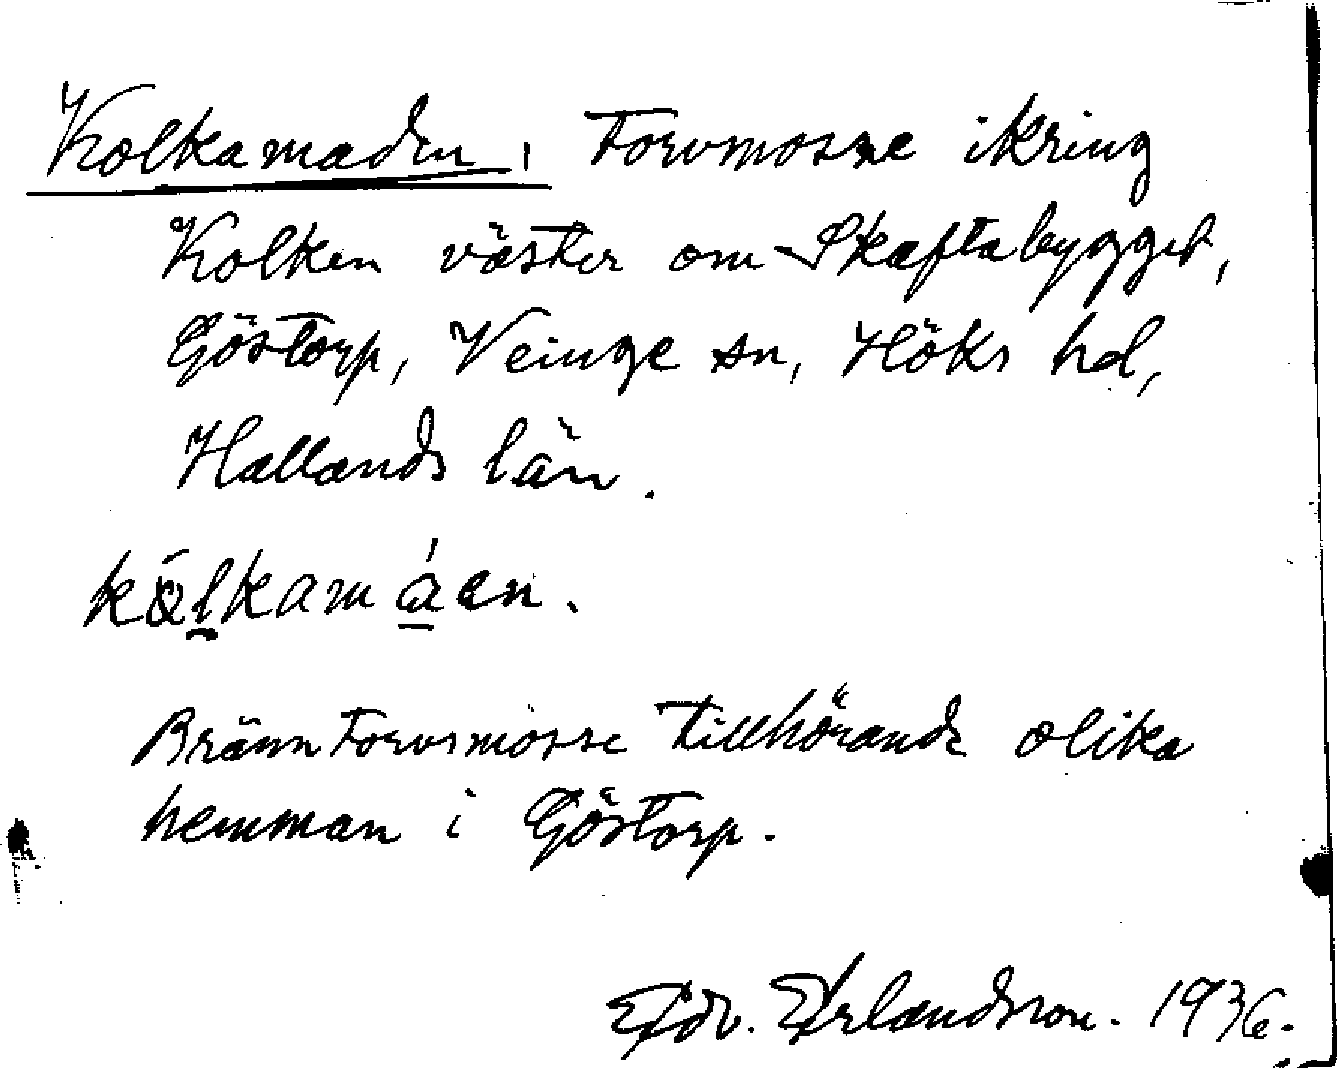 Kolkamaden, Torvmosse ikring
Kolken väster om Skaftabygget,
Göstorp, Veinge sn, Höks hd,
Hallands län.
kålkamáen.
Bränntorvsmosse tillhörande olika
hemman i Göstorp.
Edv. Erlandsson. 1936.